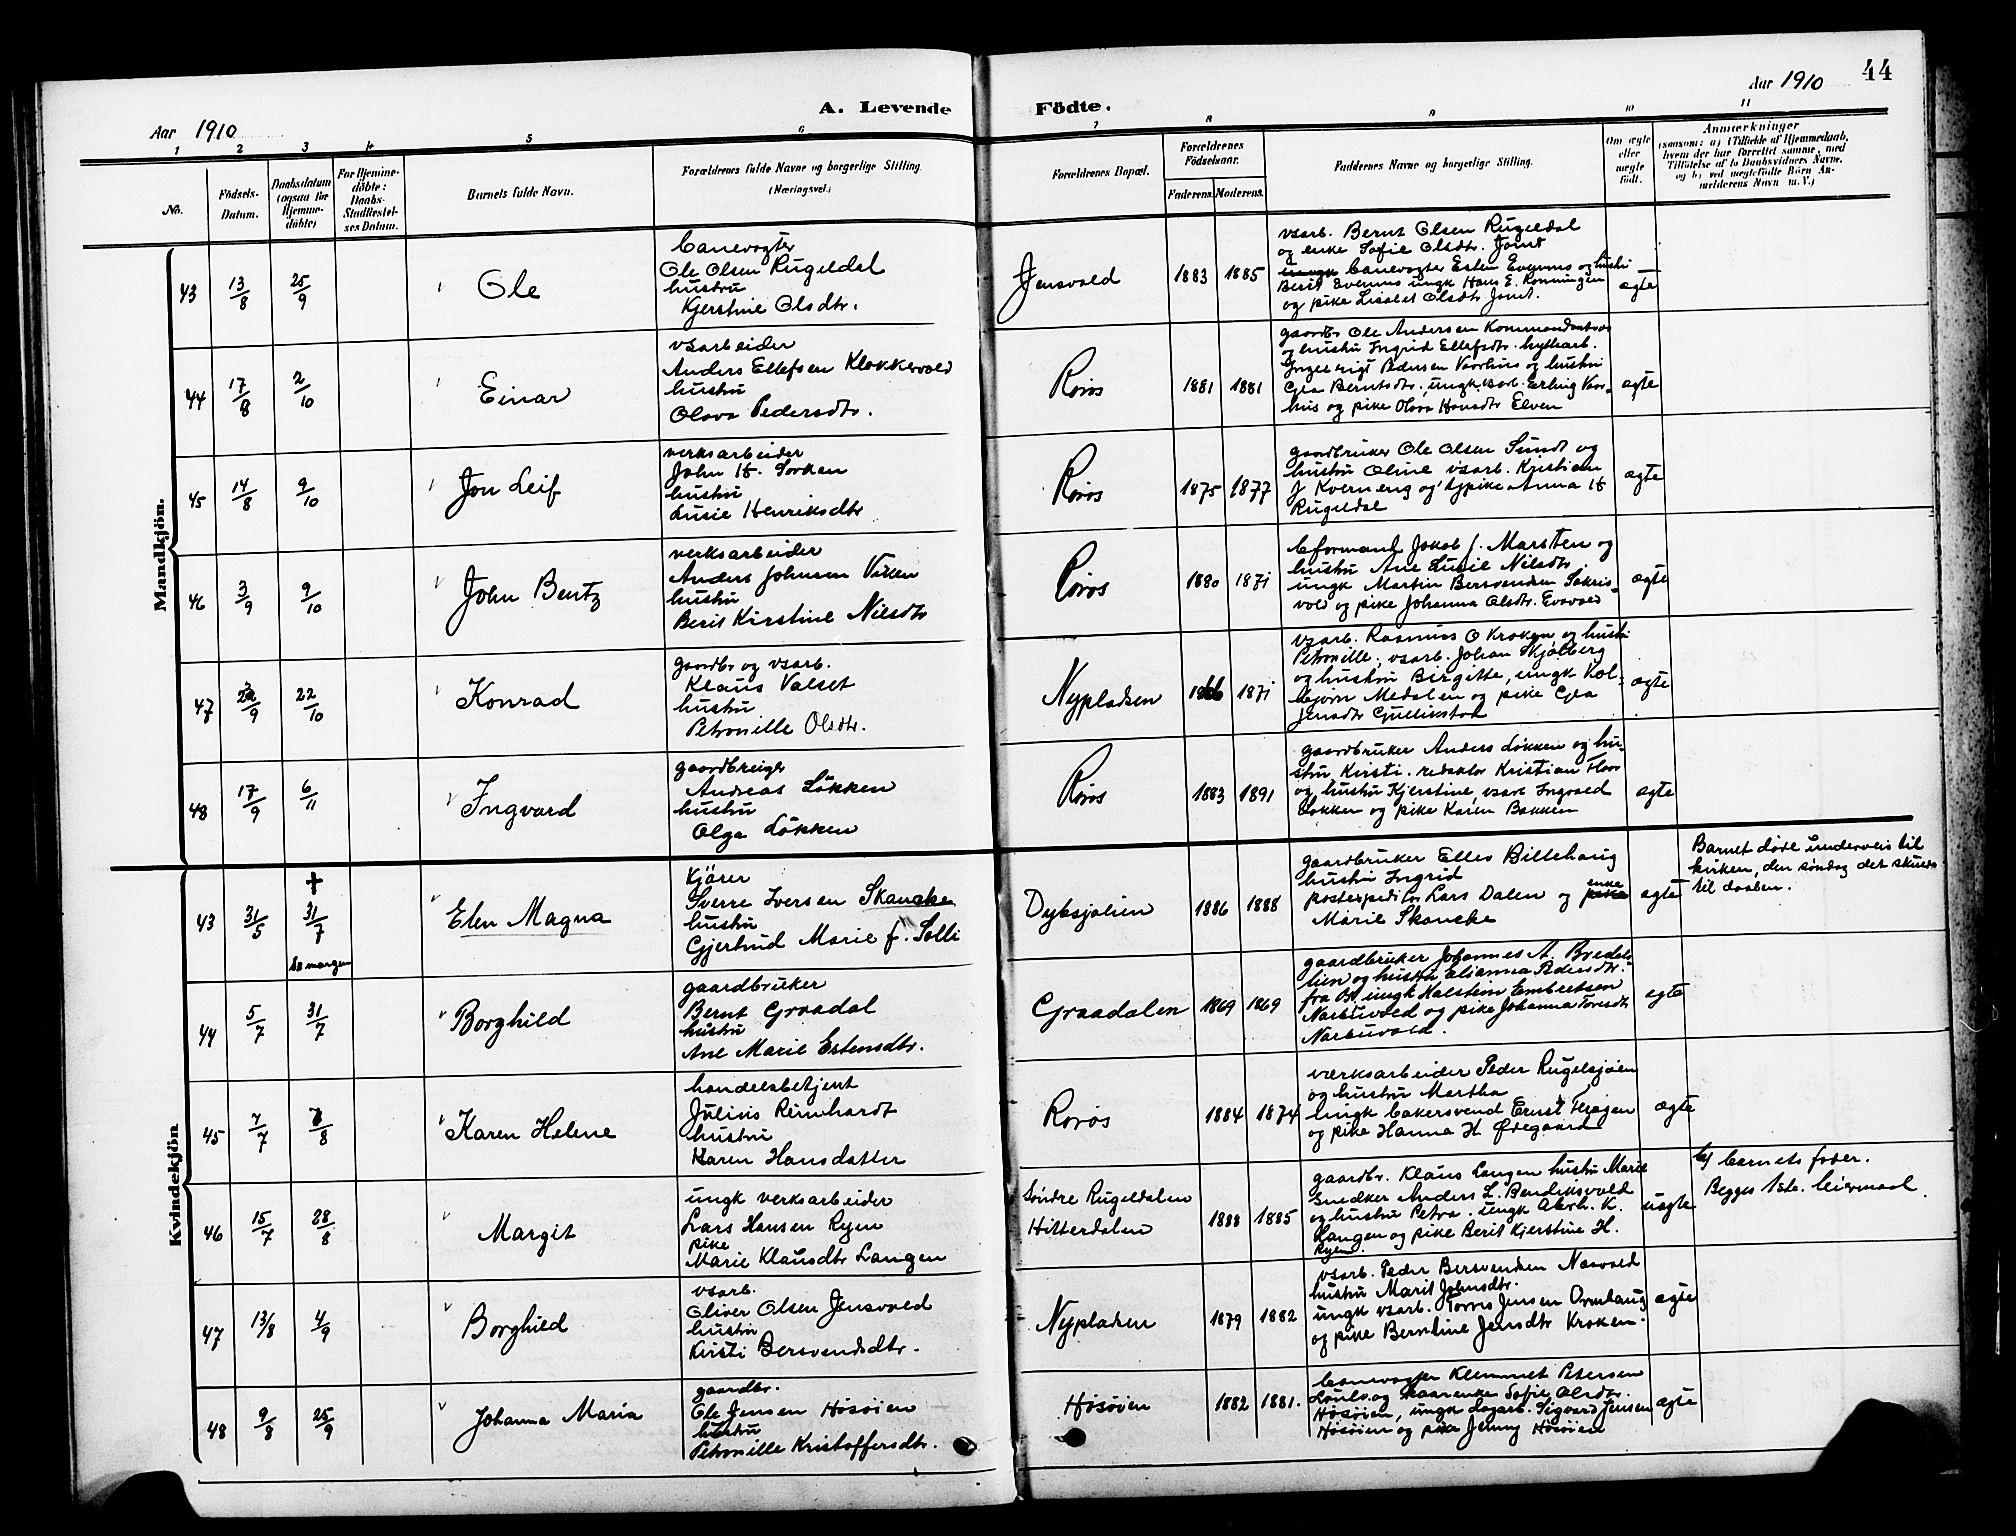 44
A. Levende Födte.
Aar 1910
Aar 1910
1 2 3 4 5 6 7 8 9 10 11
No.
Födsels-
Datum.
Daabsdatum
(ogsaa for
Hjemme-
döbte)
For Hjemme-
döbte:
Daabs-
Stadfæstel-
ses Datum.
Barnets fulde Navn.
Forældrenes fulde Navne og borgerlige Stilling.
(Næringsvei.)
Forældrenes Bopæl.
Forældrenes
Födselsaar.
Faderens. Moderens.
Faddernes Navne og borgerlige Stilling.
Om ægte
eller
uægte
født.
Anmærkninger
(saasom: a) i Tilfælde af Hjemmedaab,
hvem der har forrettet samme, med
Tilföielse af to Daabsvidners Navne,
og b) ved uægtefödte Börn An-
melderens Navn m. V.)
Mandkjön.
43 13/8 25/9 Ole
banevogter
Ole Olsen Rugeldal
hustru
Kjerstine Olsdtr.
Jensvold 1883 1885
vsarb. Bernt Olsen Rugeldal
og enke Sofie Olsdtr. Jamt
banevogter Esten Evenms og hustru
Berit Evenms ungk Hans E. Ronningen
og pike Lisbet Olsdtr Jamt.
ægte
44 17/8 2/10 Einar
vsarbeider
Anders Ellefsen Klokkervold
hustru
Olava Pedersdtr.
Røros 1881 1881
gaardbr Ole Andersen
og hustru Ingrid Ellefsdtr. hyttearb.
Ingebrigt Pedersen Vaarhus og hustru
Gea Berntsdtr, ungk. vsarb. Erling Vaar-
hus og pike Olava Hansdtr Elven
ægte
45 14/8 9/10 Jon Leif
verksarbeider
John H. Sorken
hustru
Lusie Henriksdtr
Røros 1875 1877
gaardbruker Ole Olsen Sundt og
hustru Oline vsarb. Kristian
J Kverneng og pike Anna H
Rugeldal
ægte
46 3/9 9/10 John Bentz
verksarbeider
Anders Johnsen Viken
hustru
Berit Kirstine Nilsdtr
Røros 1880 1871
formand Jakob J. Marsten og
hustru Ane Lusie Nilsdtr.
ungk Martin Bersvendsen Sakris-
vold og pike Johanna Olsdtr. Evavold
ægte
47 22/9 22/10 Konrad
gaardbr og vsarb.
Klaus Valset
hustru
Petronille Olsdtr.
Nypladsen 1866 1871
vsarb. Rasmus O Kroken og hustru
Petronille, vsarb. Johan Skjølberg
og hustru Birgitte, ungk Kol-
bjørn Medalen og pike Gea
Jensdtr Gullikstad
ægte
48 17/9 6/11 Ingvard
gaardbruiger
Andreas Løkken
hustru
Olga Løkken
Røros 1883 1891
gaardbruker Anders Løkken og hu-
stru, Kirsti. redaktør Kristian Floor
og hustru Kjerstine, vsarb Ingvald
Løkken og pike Karen Bakken
ægte
Kvindekjön
43 31/5 + 31/7 Elen Magna
kjører
Sverre Iversen Skancke
hustru
Gjertrud Marie f. Solli
Dybsjølien 1886 1888
gaardbruker Ellev Biltehaug
hustru Ingrid
postexpeditør Lars Dalen og enke pike
Marie Skancke
ægte
Barnet døde underveis til
kirken, den søndag det skulde
til daaben.
44 5/7 31/7 Borghild
gaardbruker
Bernt Graadal
hustru
Ane Marie Estensdtr.
Graadalen 1869 1869
gaardbruker Johannes A. Bredals-
lien og hustru Elianna Pedersdtr.
fra Os, ungk Halstein Embretsen
Narbuvold og pike Johanna Toresdtr
Narbuvold.
ægte
45 7/7 7/8 Karen Helene
handelsbetjent
Julius Reinhardt
hustru
Karen Hansdatter
Røros 1884 1874
værksarbeider Peder Rugelsjøen
og hustru Martha
ungk bakersvend Ernst Flojgen
og pike Hanna H. Ødegaard
ægte
46 15/7 28/8 Margit
ungk verksarbeider
Lars Hansen Ryen
pike
Marie Klausdtr Langen
Søndre Rugeldalen
Hitterdalen
1888 1885
gaardbr. Klaus Langen hustru Marie
Snedker Anders L. Bendiksvold
og hustru Petra. ungk Abrh. K.
Langen og pike Berit Kjerstine H.
Ryen.
uegte
b) barnets fader.
Begges 1ste leiermaal.
47 13/8 4/9 Borghild
vsarb.
Oliver Olsen Jensvold
hustru
Kirsti Bersvendsdtr.
Nypladsen 1879 1882
vsarb. Peder Bersvendsen Næsvold
hustru Marit Johnsdtr.
ungk vsarb. Torris Jensen Overhaug
og pike Berntine Jensdtr Kroken.
ægte
48 9/8 25/9 Johanna Maria
gaardbr.
Ole Jensen Høsøien
hustru
Petronille Kristoffersdtr.
Høsøien 1882 1881.
banevogter Klemmet Petersen
og enke Sofie Olsdtr.
Høsøien, ungk dagarb. Sigvard Jensen
Høsøien og pike Jenny Høsøien
ægte